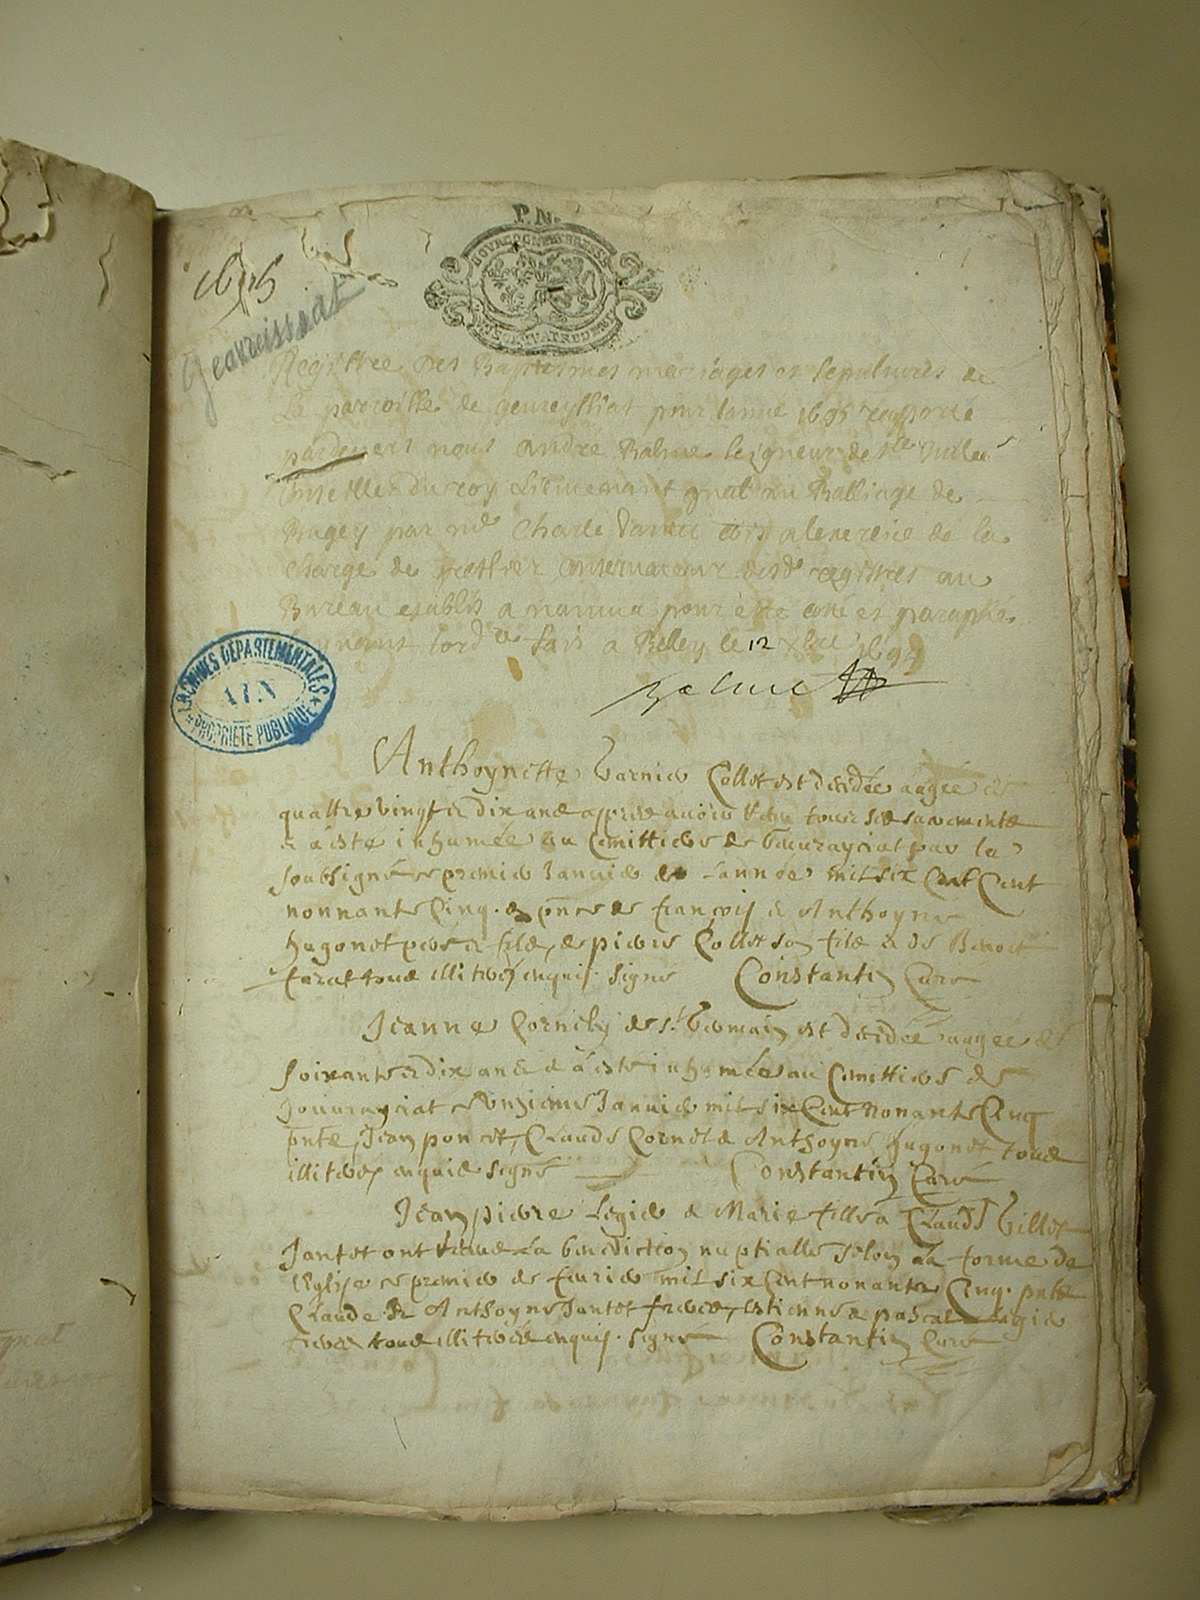 P. N.
BOVRGOGNE ET BRESSE
1695
Geovreissiat
Registre des Baptesmes mariages et sepultures de
La parroisse de geureyssiat pour lannee 1695 rapporté
pardevers nous André Balme seigneur de Ste
Conseiller du roy Lieutenant gnal au Balliage de
Bugey par Me Charle commis a lexercice de la
charge de greffier conservateur desd registres au
Bureau establis a nantua pour estre cotté et paraphé
suivant lord.ce fait a Belley le 12 Xbre 1694
Balme
ARCHIVES DÉPARTEMENTALES
AIN
PROPRIÉTÉ PUBLIQUE
Anthoynette Collet est decedée aagée de
quattre vingt et dix ans appres avoir tous ses sacrements
et a esté inhumée au Cimittiere de par le
soubsigné ce premier Janvier de lannée mil six Cent
nonnante Cinq. en pnce de françois et Anthoyne
hugonet pere et fils, de pierre Collet son fils et de Benoit
tous illiterés enquis. signé Constantin Curé
Jeanne de st. Germain est decedée aagée de
soixante et dix ans et a esté inhumée au Cimittiere de
ce unzieme Janvier mil six Cent nonante Cinq
pnts, Jean poncet, Claude Cornet et Anthoyne hugonet tous
illiterés enquis signé Constantin Curé
Jean pierre Legier et Marie fille a Claude
Jantet ont receu la benediction nuptialle selon la forme de
l'Eglise ce premier de feurier mil six Cent nonante Cinq. pnts
Claude et Anthoyne Jantet freres, estienne et pascal Legier
freres tous illiterés enquis. signé Constantin Curé